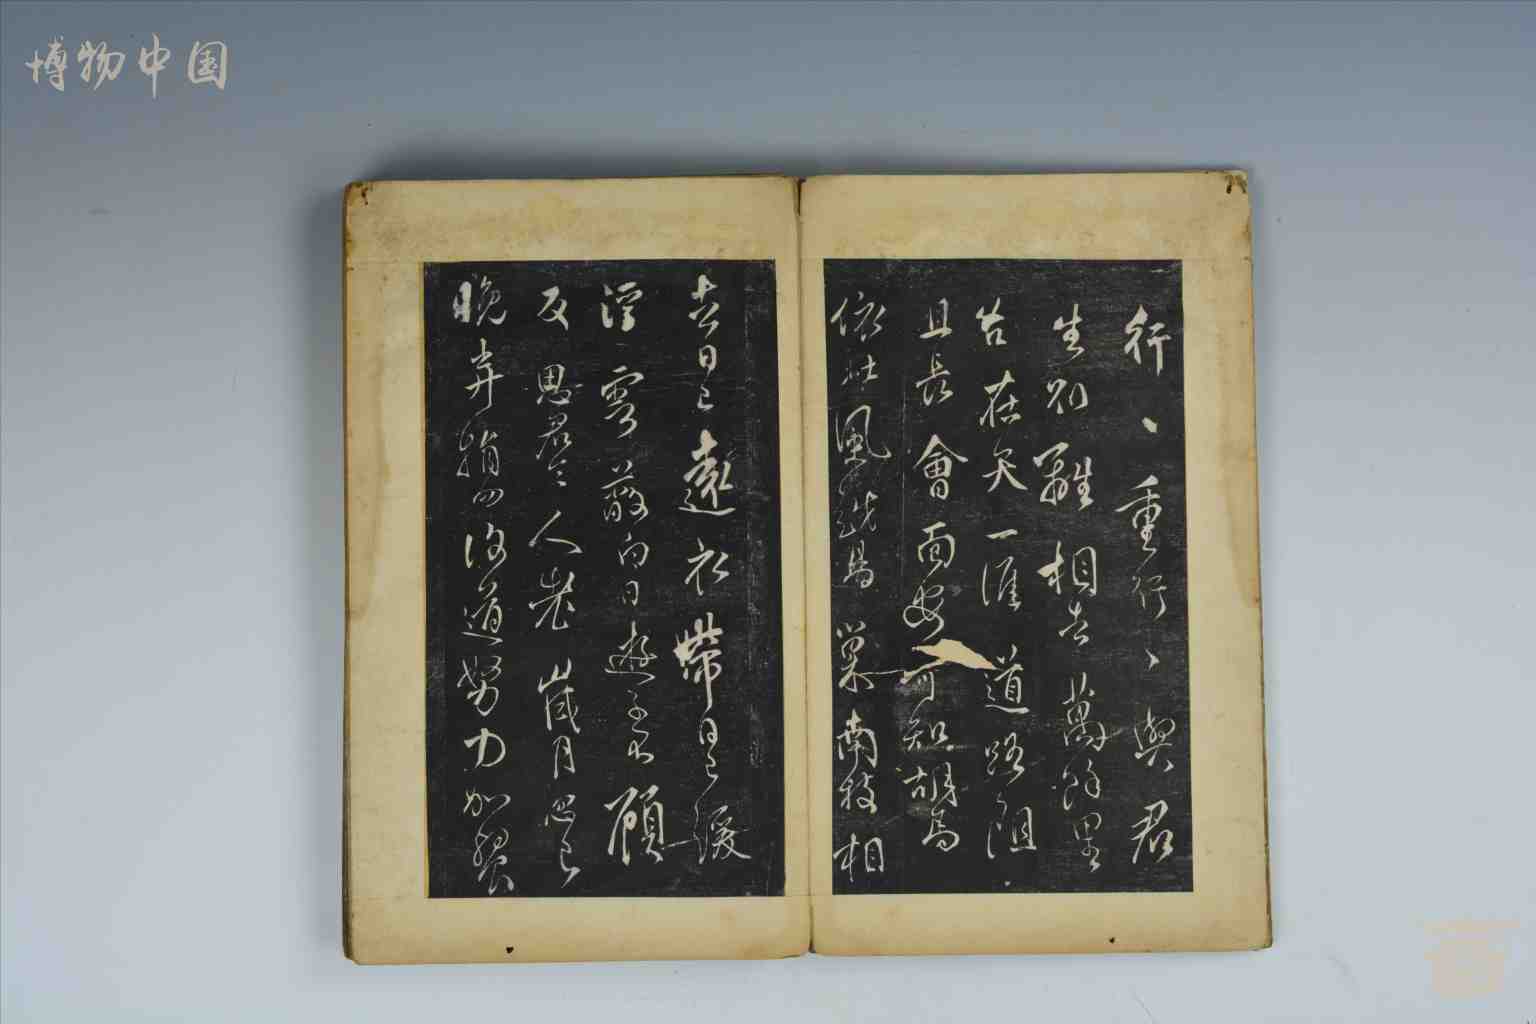 博物中国
行、重行、與君
生別離相去萬餘里
各在天一涯道路阻
且長會面安可知胡馬
依北風越鳥巢南枝相
去日已遠衣帶日已緩
浮雲蔽白日遊子不顧
反思君令人老歲月忽已
晚弃捐勿復道努力加餐